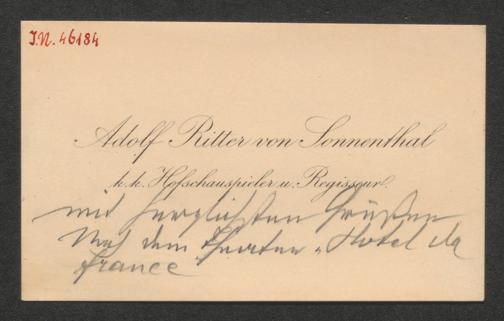 I.N. 46184
Adolf Ritter von Sonnenthal
k.k. Hofschauspieler u. Regisseur.
mit herzlichsten Grüßen
Nach dem Theater „Hotel de
France